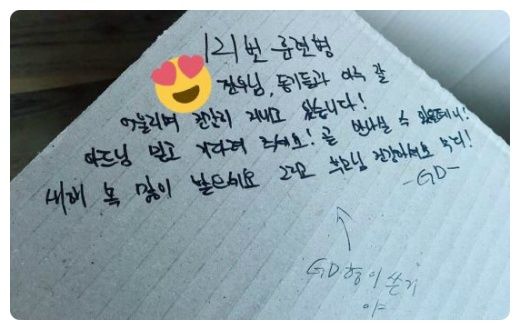 121번 훈련병
전우님, 동기들과 아주 잘
어울리며 건강히 지내고 있습니다!
아드님 믿고 기다려 주세요! 곧 만나실 수 있을테니!
새해 복 많이 받으세요 그리고 부모님 건강하셔요 축디!
-GD-
GD형이 쓴거
야